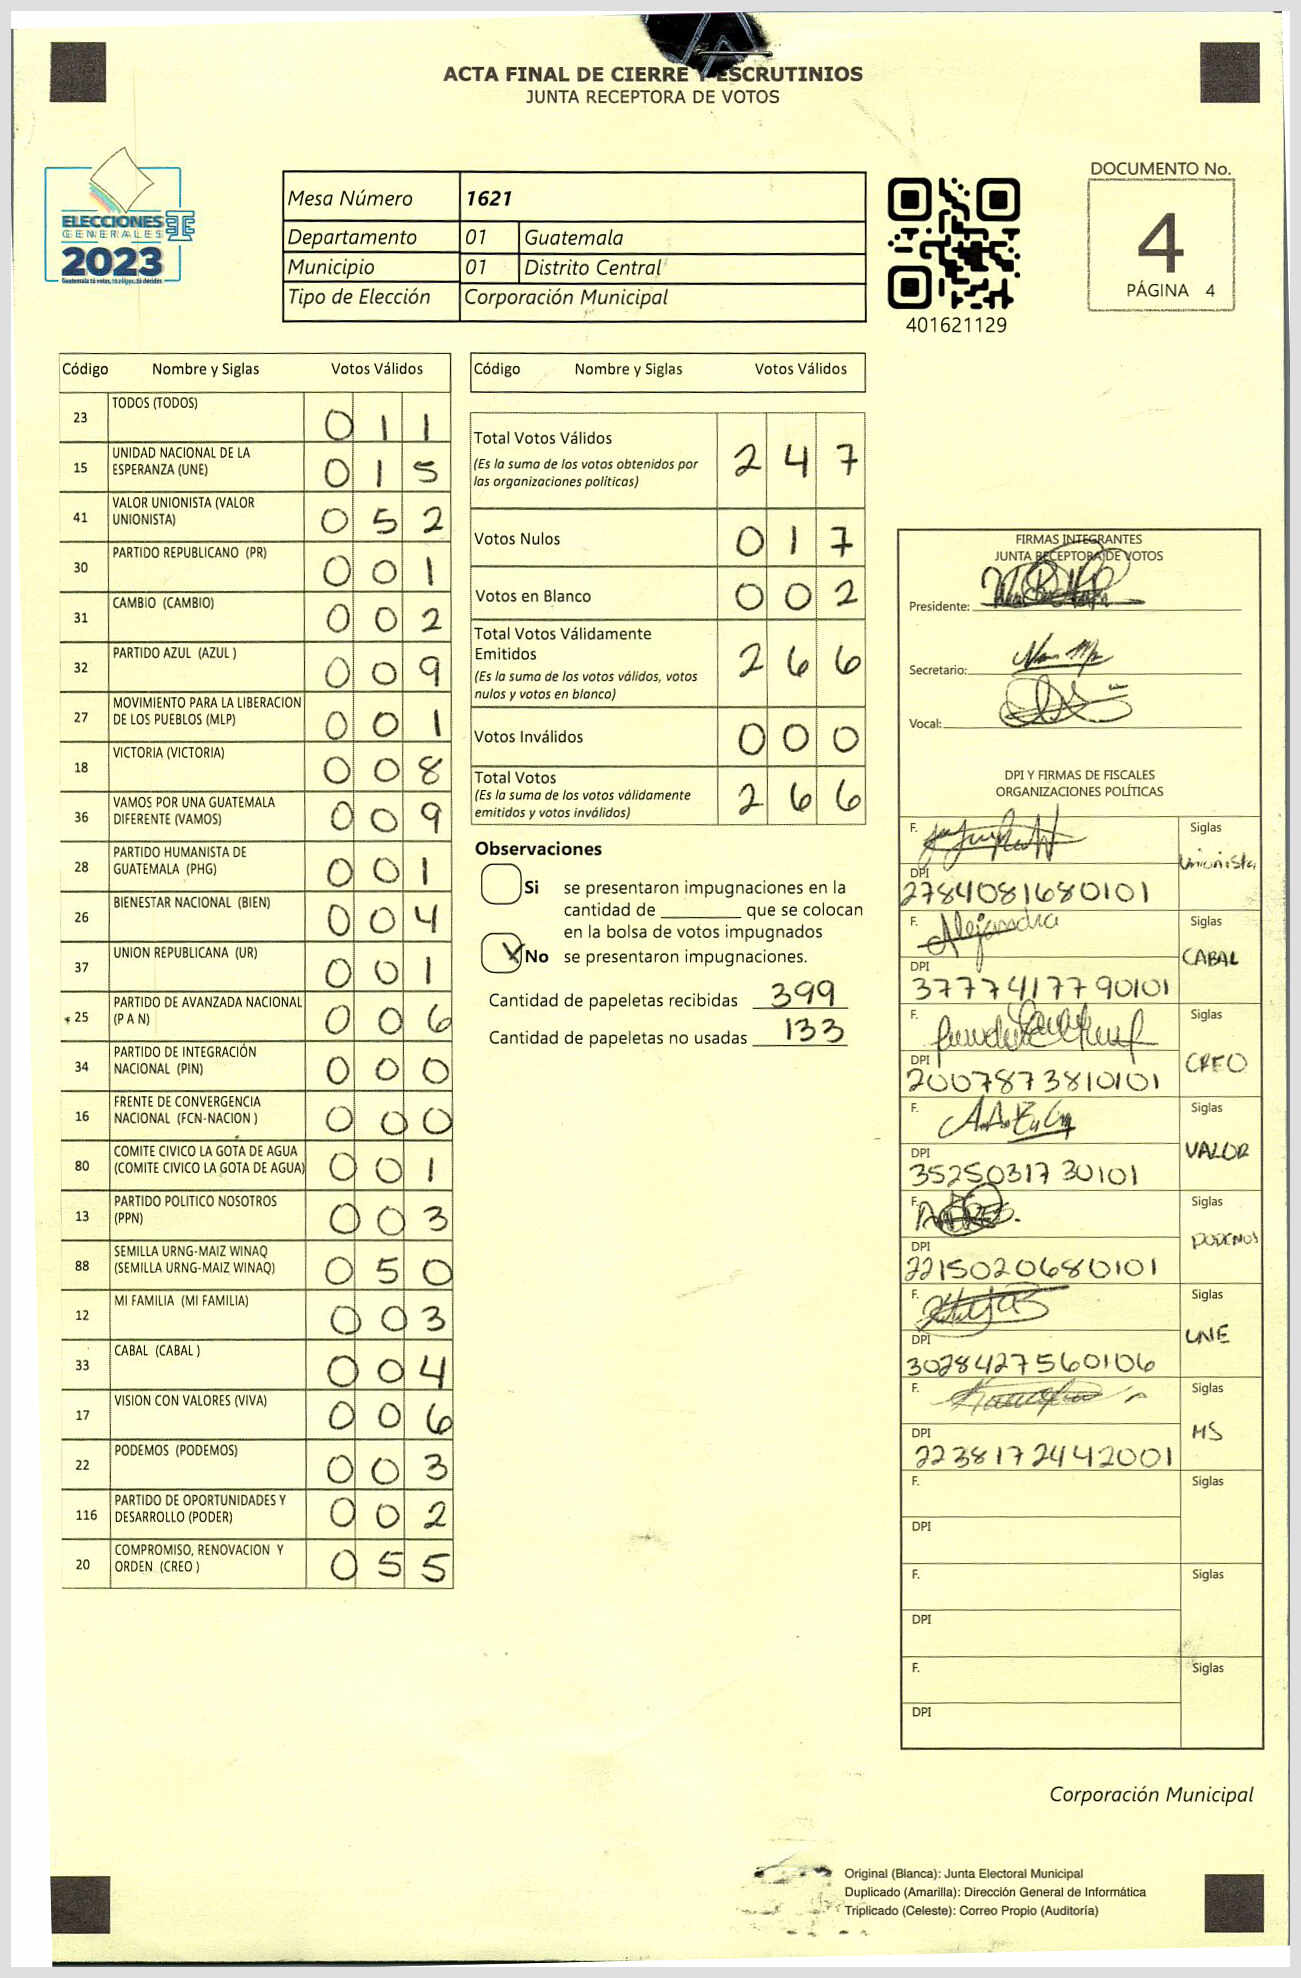 ACTA FINAL DE CIERRE Y ESCRUTINIOS
JUNTA RECEPTORA DE VOTOS
ELECCIONES
GENERALES
2023
Guatemala tú votas, tú eliges, tú decides
Mesa Número 1621
Departamento 01 Guatemala
Municipio 01 Distrito Central
Tipo de Elección Corporación Municipal
401621129
DOCUMENTO No.
4
PÁGINA 4
Código Nombre y Siglas Votos Válidos
23 TODOS (TODOS) 0 1 1
15 UNIDAD NACIONAL DE LA
ESPERANZA (UNE) 0 1 5
41 VALOR UNIONISTA (VALOR
UNIONISTA) 0 5 2
30 PARTIDO REPUBLICANO (PR) 0 0 1
31 CAMBIO (CAMBIO) 0 0 2
32 PARTIDO AZUL (AZUL ) 0 0 9
27 MOVIMIENTO PARA LA LIBERACION
DE LOS PUEBLOS (MLP) 0 0 1
18 VICTORIA (VICTORIA) 0 0 8
36 VAMOS POR UNA GUATEMALA
DIFERENTE (VAMOS) 0 0 9
28 PARTIDO HUMANISTA DE
GUATEMALA (PHG) 0 0 1
26 BIENESTAR NACIONAL (BIEN) 0 0 4
37 UNION REPUBLICANA (UR) 0 0 1
25 PARTIDO DE AVANZADA NACIONAL
(P A N) 0 0 6
34 PARTIDO DE INTEGRACIÓN
NACIONAL (PIN) 0 0 0
16 FRENTE DE CONVERGENCIA
NACIONAL (FCN-NACION ) 0 0 0
80 COMITE CIVICO LA GOTA DE AGUA
(COMITE CIVICO LA GOTA DE AGUA) 0 0 1
13 PARTIDO POLITICO NOSOTROS
(PPN) 0 0 3
88 SEMILLA URNG-MAIZ WINAQ
(SEMILLA URNG-MAIZ WINAQ) 0 5 0
12 MI FAMILIA (MI FAMILIA) 0 0 3
33 CABAL (CABAL ) 0 0 4
17 VISION CON VALORES (VIVA) 0 0 6
22 PODEMOS (PODEMOS) 0 0 3
116 PARTIDO DE OPORTUNIDADES Y
DESARROLLO (PODER) 0 0 2
20 COMPROMISO, RENOVACION Y
ORDEN (CREO ) 0 5 5
Código Nombre y Siglas Votos Válidos
Total Votos Válidos 2 4 7
(Es la suma de los votos obtenidos por
las organizaciones políticas)
Votos Nulos 0 1 7
Votos en Blanco 0 0 2
Total Votos Válidamente
Emitidos 2 6 6
(Es la suma de los votos válidos, votos
nulos y votos en blanco)
Votos Inválidos 0 0 0
Total Votos 2 6 6
(Es la suma de los votos válidamente
emitidos y votos inválidos)
Observaciones
Si se presentaron impugnaciones en la
cantidad de ________ que se colocan
en la bolsa de votos impugnados
No se presentaron impugnaciones.
Cantidad de papeletas recibidas 399
Cantidad de papeletas no usadas 133
FIRMAS INTEGRANTES
JUNTA RECEPTORA DE VOTOS
Presidente:
Secretario:
Vocal:
DPI Y FIRMAS DE FISCALES
ORGANIZACIONES POLÍTICAS
F. Siglas
Unionista
DPI
2784081680101
F. Alejandra Siglas
CABAL
DPI
3777417790101
F. Siglas
CREO
DPI
2007873810101
F. Siglas
VALOR
DPI
3525031730101
F. Siglas
PODEMOS
DPI
2215020680101
F. Siglas
UNE
DPI
3028427560106
F. Siglas
MS
DPI
2238172442001
F. Siglas
DPI
F. Siglas
DPI
F. Siglas
DPI
Corporación Municipal
Original (Blanca): Junta Electoral Municipal
Duplicado (Amarilla): Dirección General de Informática
Triplicado (Celeste): Correo Propio (Auditoría)